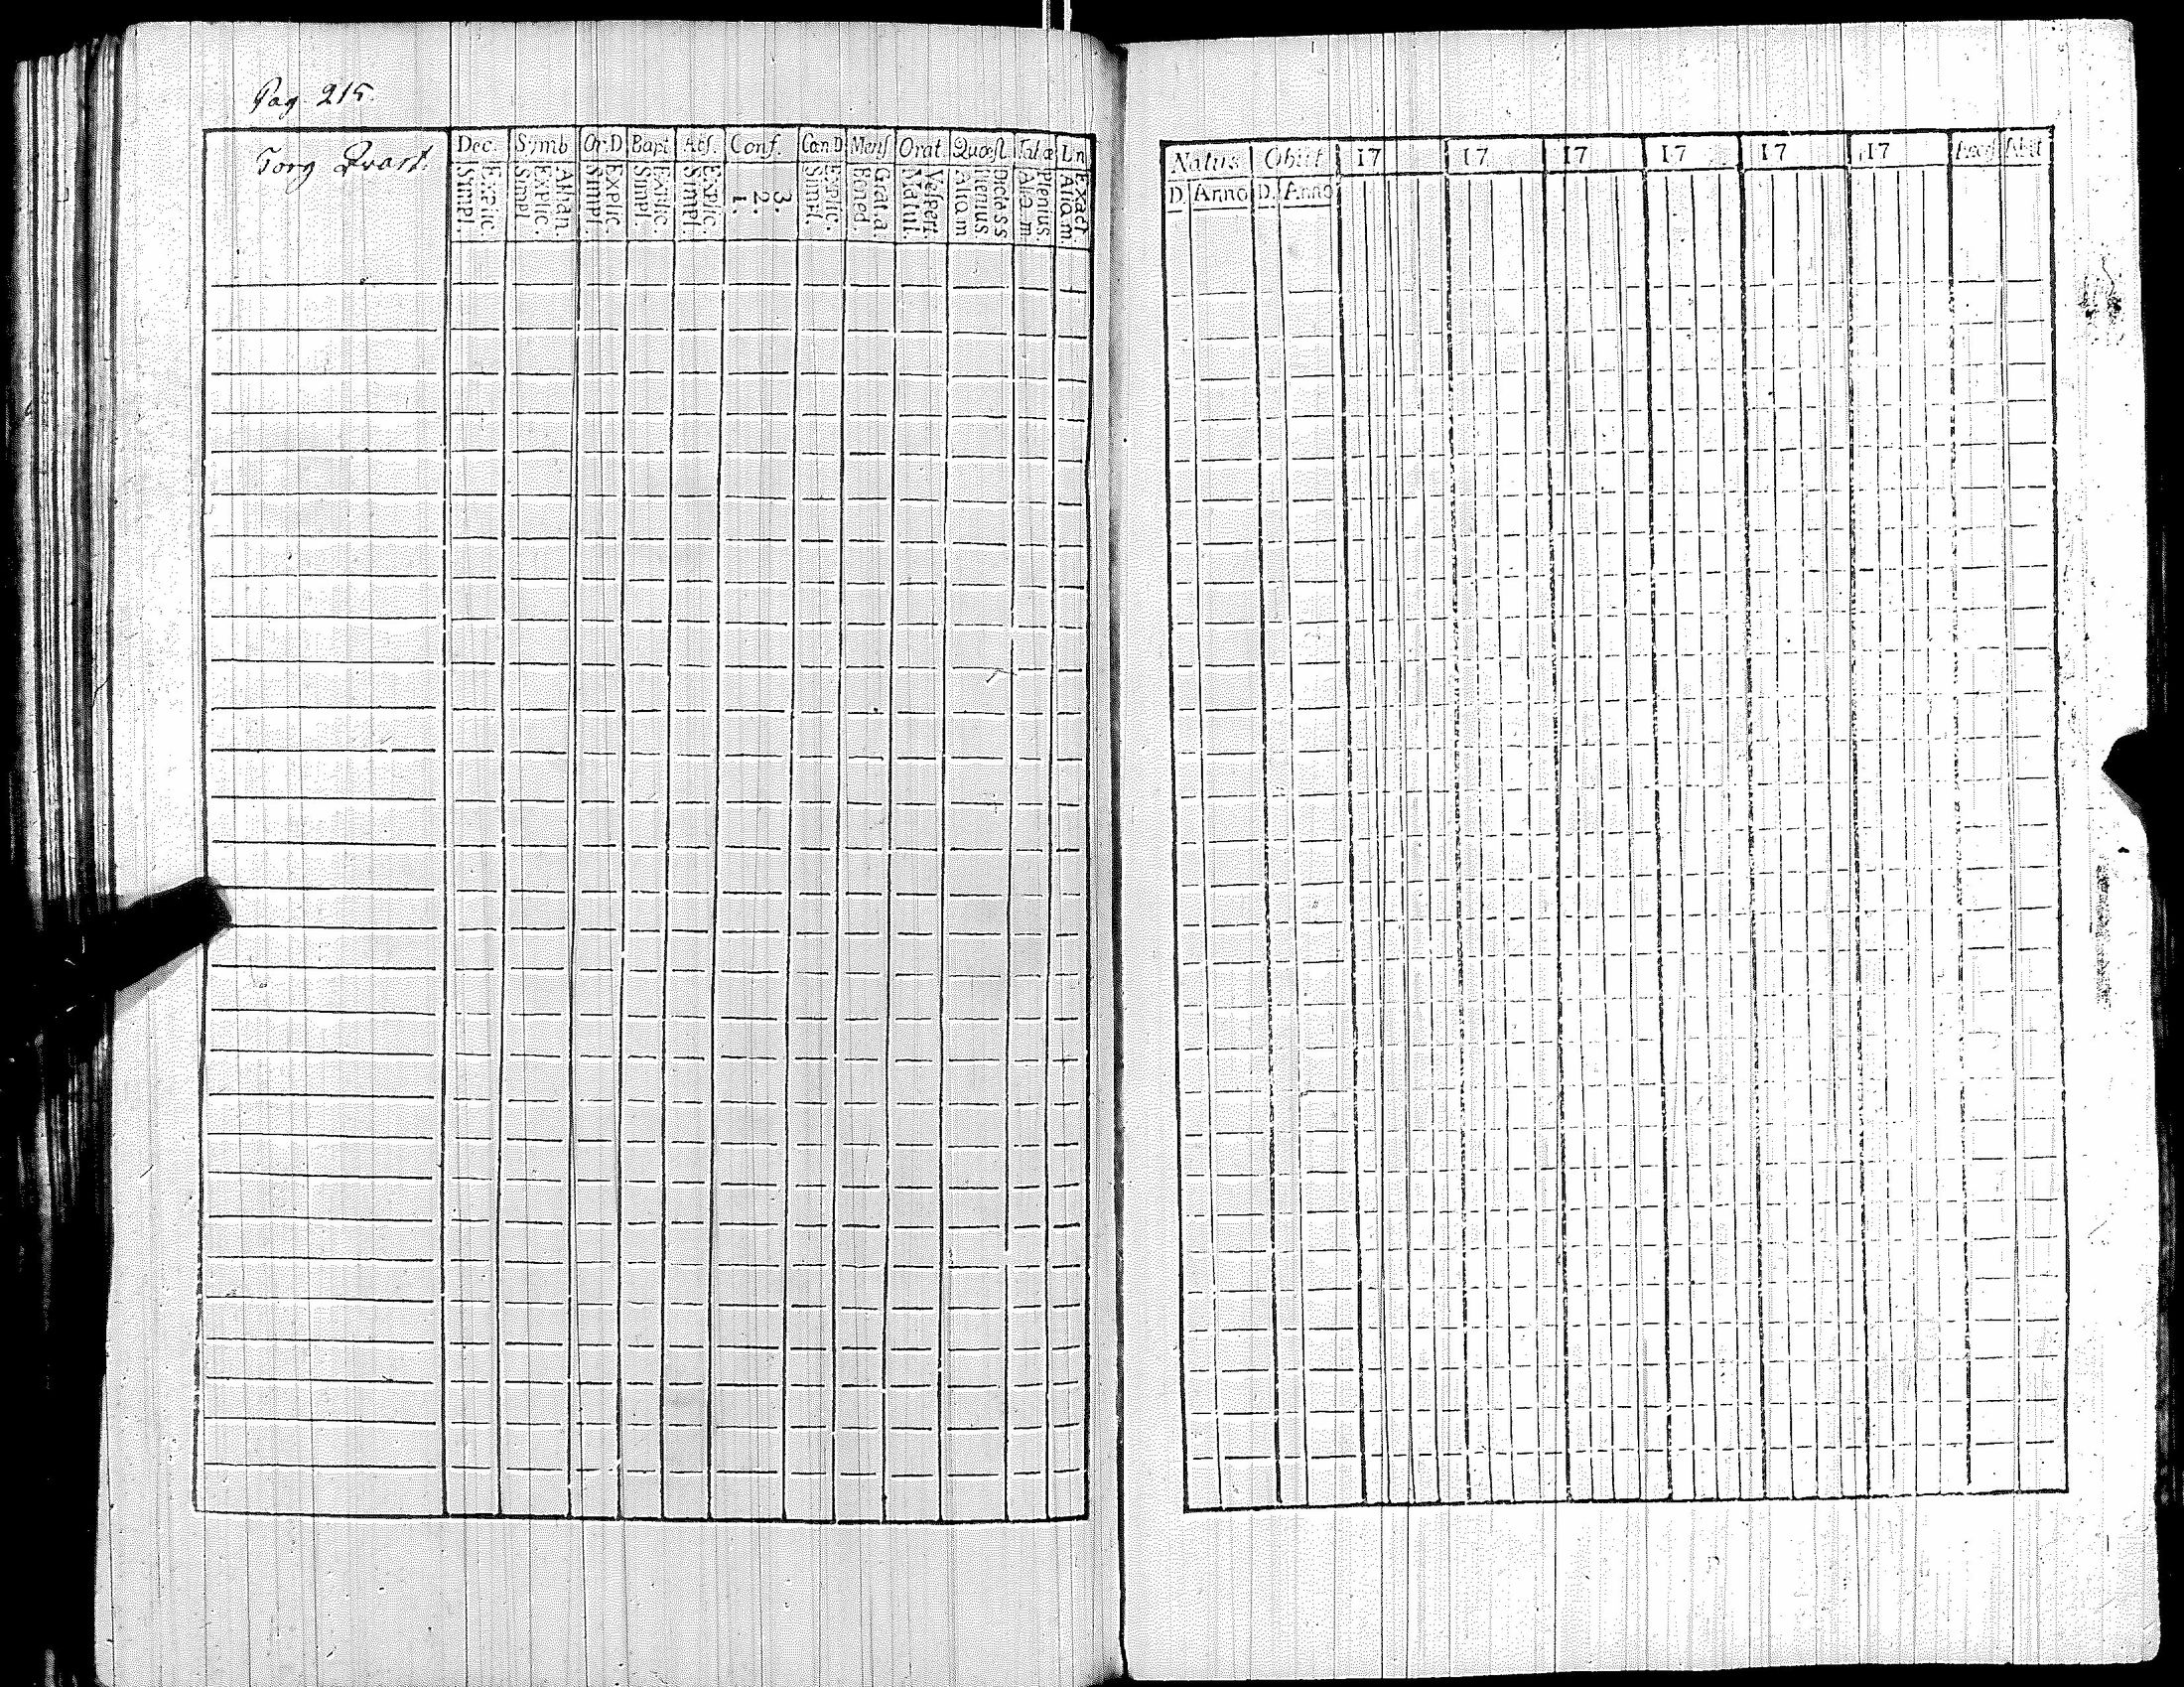 Pag 215.
Torg Qvart.
Dec. Symb Or.D Bapt Abs. Conf. Cœn.D Mens Orat. Quæst. Tab.œ
Simpl. Explic.
Simpl. Explic. Athan.
Simpl. Explic.
Simpl. Explic.
Simpl. Explic.
1. 2. 3.
Simpl. Explic.
Bened. Grat.a.
Matut. Vespert.
Aliq.m Plenius. Dictess
Aliq.m Plenius.
Aliq.m Exact.
Natus Obiit 17 17 17 17 17 17 Abiit
D. Anno D. Anno